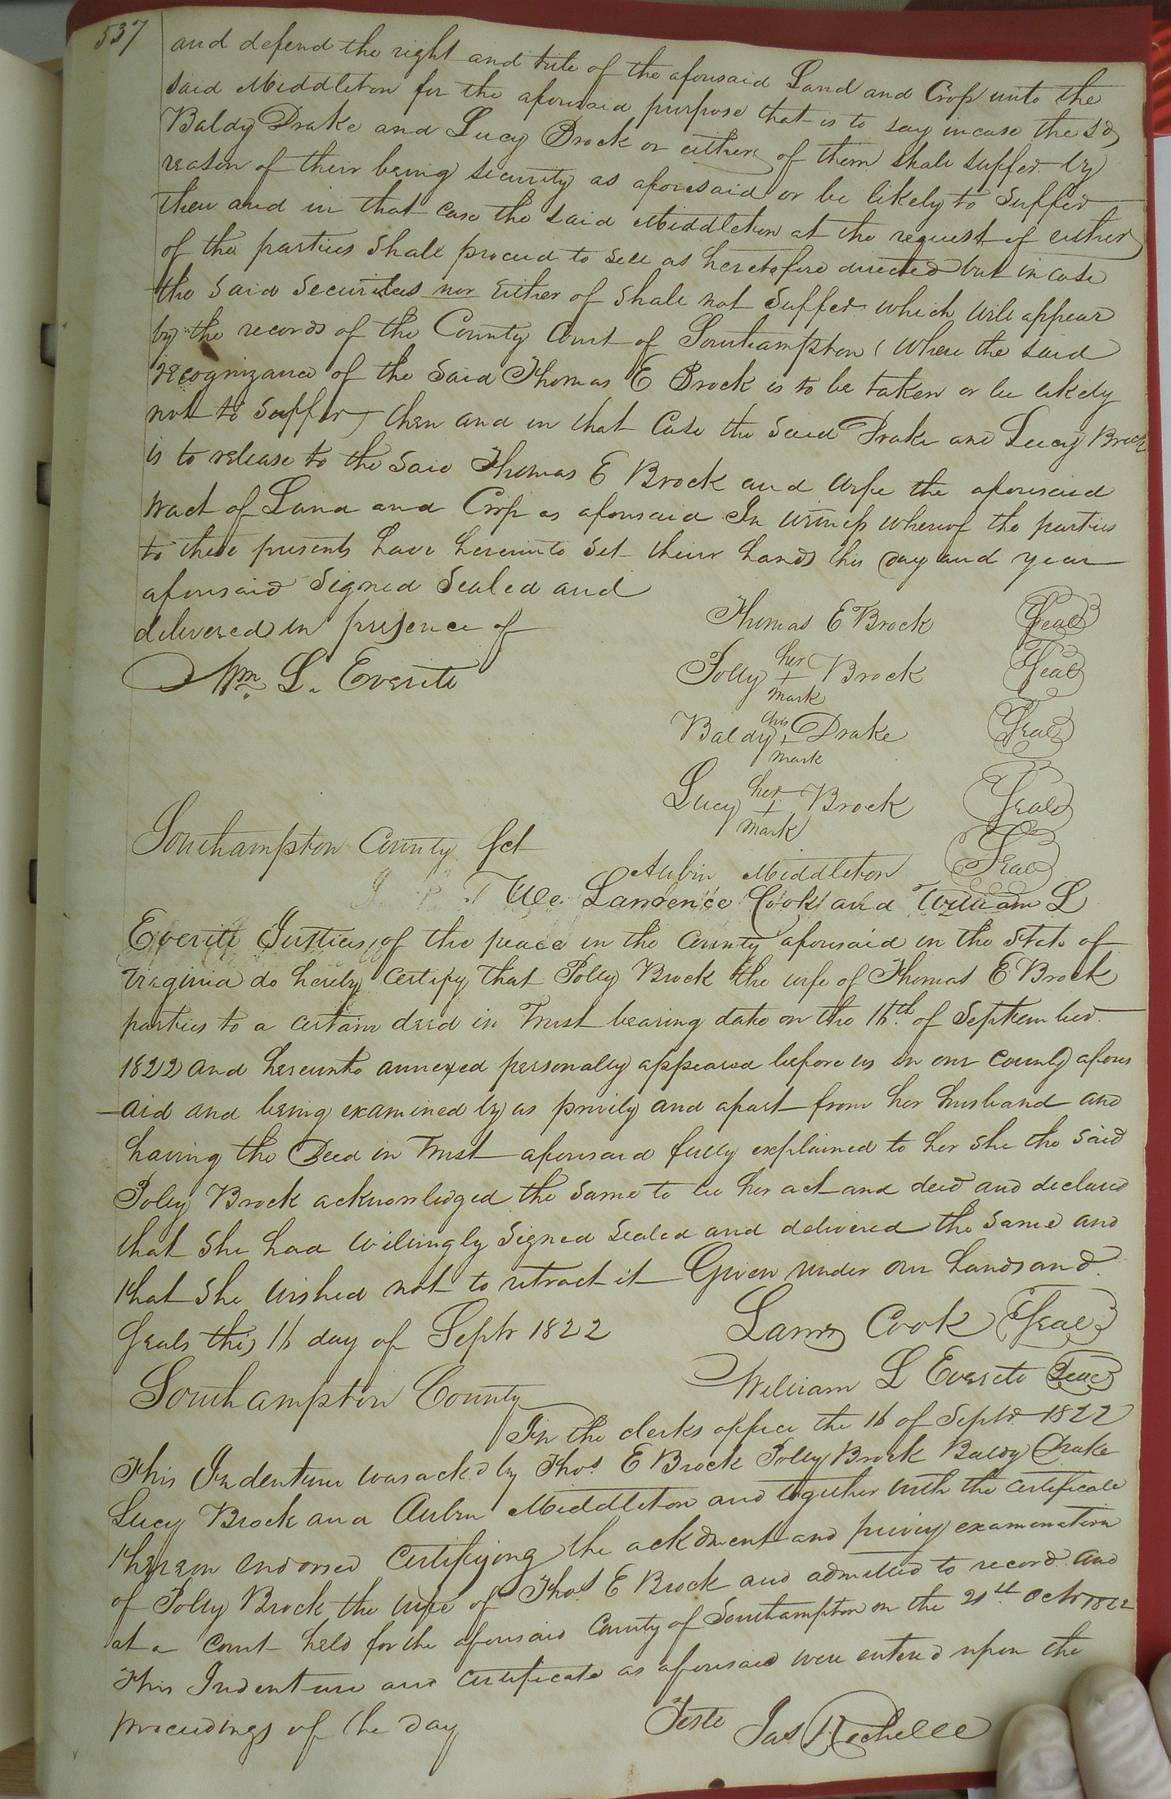 537
and defend the right and title of the aforesaid Land and Crop unto the
said Middleton for the aforesaid purpose that is to say in case the sd
Baldy Drake and Lucy Brock or either of them shall suffer by
reason of their being security as aforesaid or be likely to suffer
then and in that case the said Middleton at the request of either
of the parties shall proceed to sell as heretofore directed but in case
the said securities nor either of shall not suffer which will appear
by the records of the County Court of Southampton (where the said
recognizance of the said Thomas E Brock is to be taken or be likely
not to suffer) then and in that case the said Drake and Lucy Brock
is to release to the said Thomas E Brock and wife the aforesaid
tract of Land and Crop as aforesaid In witness whereof the parties
to these presents have hereunto set their hands this day and year
aforesaid Signed Sealed and
delivered in presence of
Wm. L. Everitt
Thomas E Brock Seal
Polly her + mark Brock Seal
Baldy his + mark Drake Seal
Lucy her + mark Brock Seal
Aubin Middleton Seal
Southampton County Sct
We Lawrence Cook and William L
Everitt Justices of the peace in the County aforesaid in the State of
Virginia do hereby certify that Polly Brock the wife of Thomas E Brock
parties to a certain deed in Trust bearing date on the 16th of September
1822 and hereunto annexed personally appeared before us in our County afores
aid and being examined by us privily and apart from her husband and
having the Deed in Trust aforesaid fully explained to her she the said
Polly Brock acknowledged the same to be her act and deed and declared
that she had willingly signed sealed and delivered the same and
that she wished not to retract it Given under our hands and
Seals this 16 day of Septr 1822
Lawrs Cook Seal
William L Everitt Seal
Southampton County
In the clerks office the 16 of Septr 1822
This Indenture was ackd by Thos E Brock Polly Brock Baldy Drake
Lucy Brock and Aubin Middleton and together with the certificate
thereon endorsed Certifying the ackdment and privy examination
of Polly Brock the wife of Thos E Brock and admitted to record and
at a Court held for the aforesaid County of Southampton on the 21st Octr 1822
This Indenture and certificate as aforesaid were entered upon the
proceedings of the day
Teste Jas Rochelle